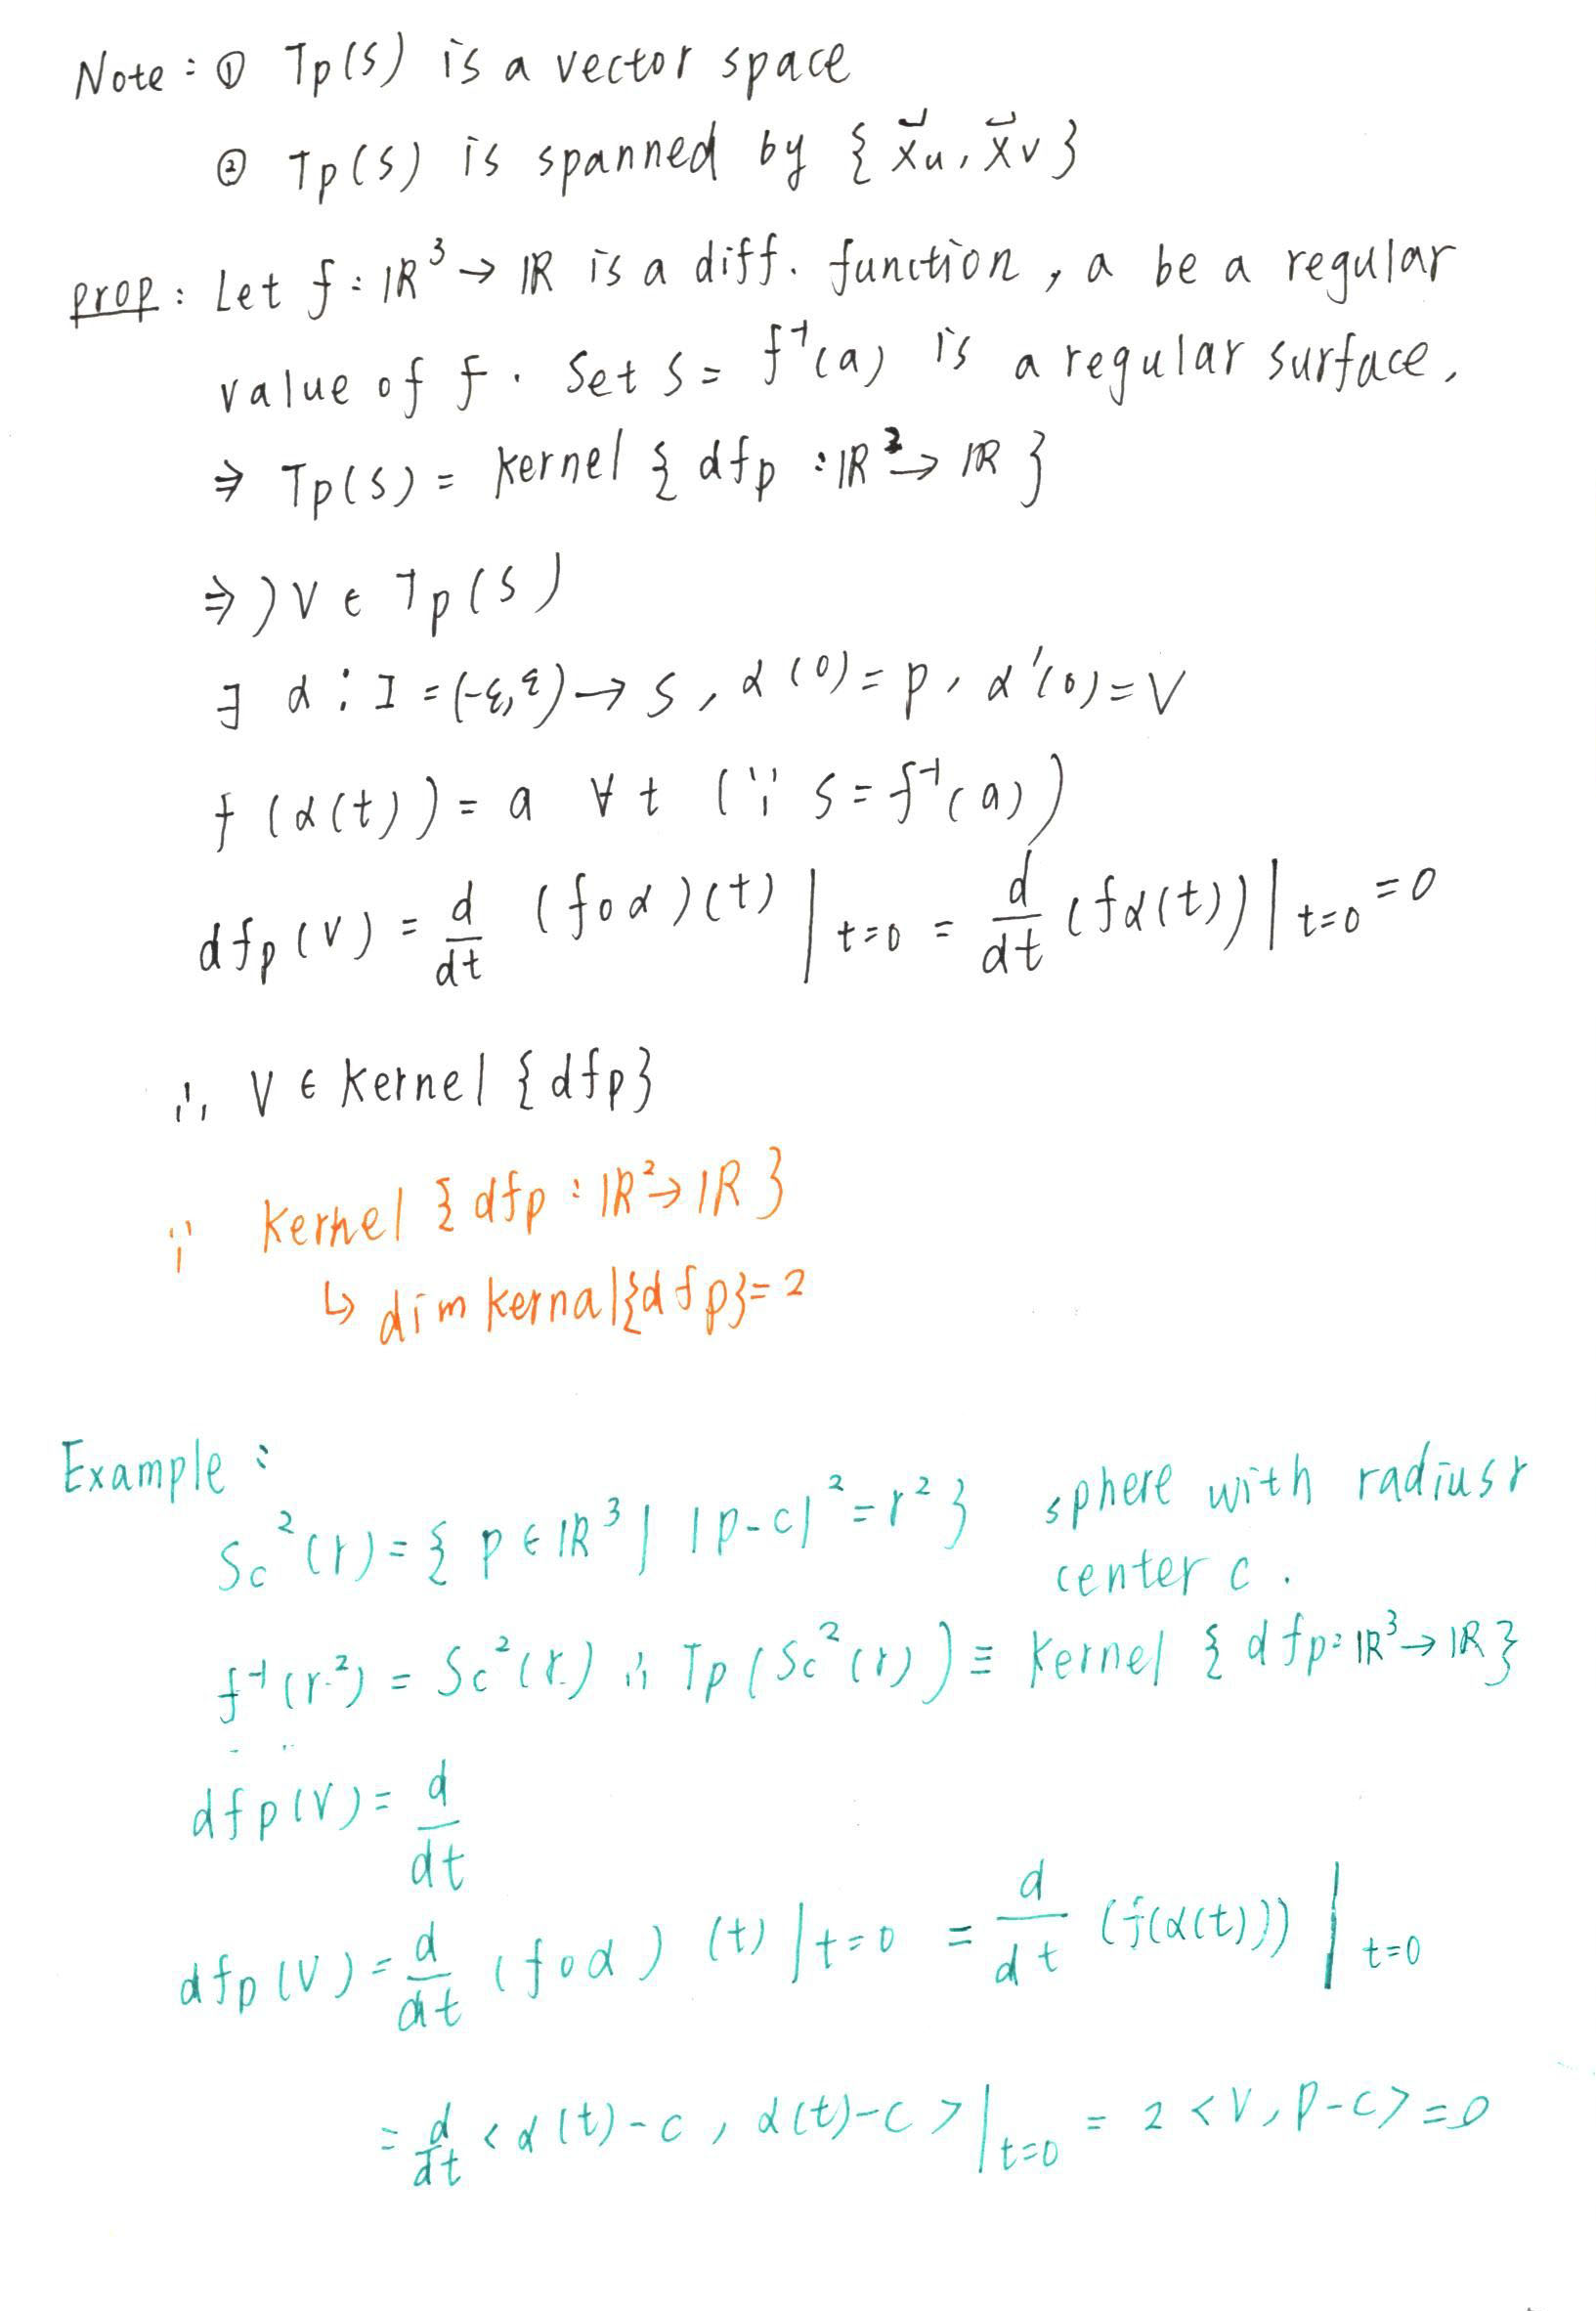 Note : ① Tp(S) is a vector space
② Tp(S) is spanned by { x⃗u, x⃗v }
prop : Let f : ℝ³ → ℝ is a diff. function, a be a regular
value of f. Set S = f⁻¹(a) is a regular surface.
⇒ Tp(S) = kernel { dfp : ℝ³ → ℝ }
⇒) V ∈ Tp(S)
∃ α : I = (-ε, ε) → S, α(0) = p, α'(0) = V
f(α(t)) = a ∀t (∵ S = f⁻¹(a))
dfp(V) = d/dt (f∘α)(t) |t=0 = d/dt (fα(t)) |t=0 = 0
∴ V ∈ kernel {dfp}
∵ kernel { dfp : ℝ² → ℝ }
↳ dim kernal{dfp} = 2
Example :
Sc²(r) = { p ∈ ℝ³ | |p-c|² = r² } sphere with radius r
center c.
f⁻¹(r²) = Sc²(r) ∴ Tp(Sc²(r)) ≡ kernel { dfp : ℝ³ → ℝ }
dfp(V) = d/dt
dfp(V) = d/dt (f∘α)(t) |t=0 = d/dt (f(α(t))) |t=0
= d/dt <α(t)-c, α(t)-c> |t=0 = 2<V, p-c> = 0